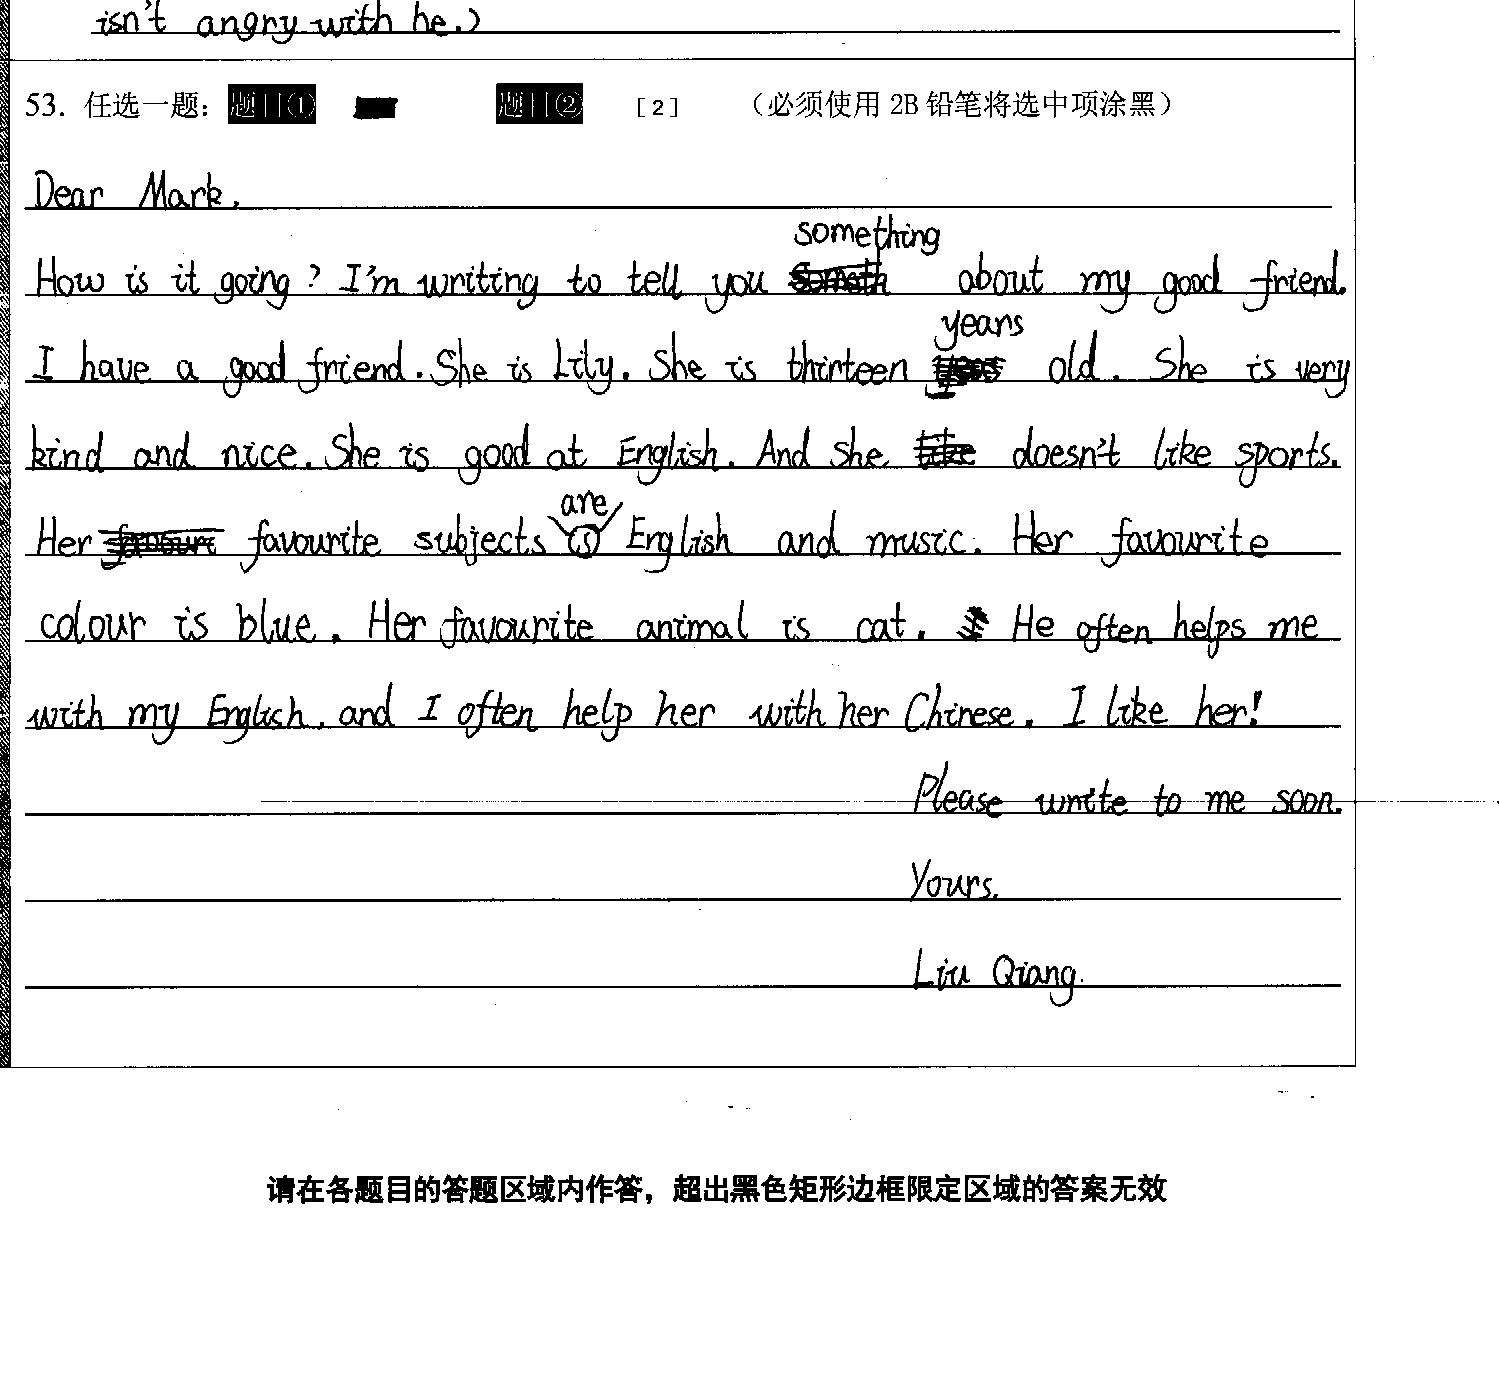 isn't angry with he.)
53. 任选一题： 题目① 题目② [2] （必须使用 2B 铅笔将选中项涂黑）
Dear Mark.
How is it going? I'm writing to tell you something about my good friend.
I have a good friend. She is Lily. She is thirteen years old. She is very
kind and nice. She is good at English. And she doesn't like sports.
Her favourite subjects are English and music. Her favourite
colour is blue. Her favourite animal is cat. He often helps me
with my English. and I often help her with her Chinese. I like her!
Please write to me soon.
Yours.
Liu Qiang.
请在各题目的答题区域内作答，超出黑色矩形边框限定区域的答案无效